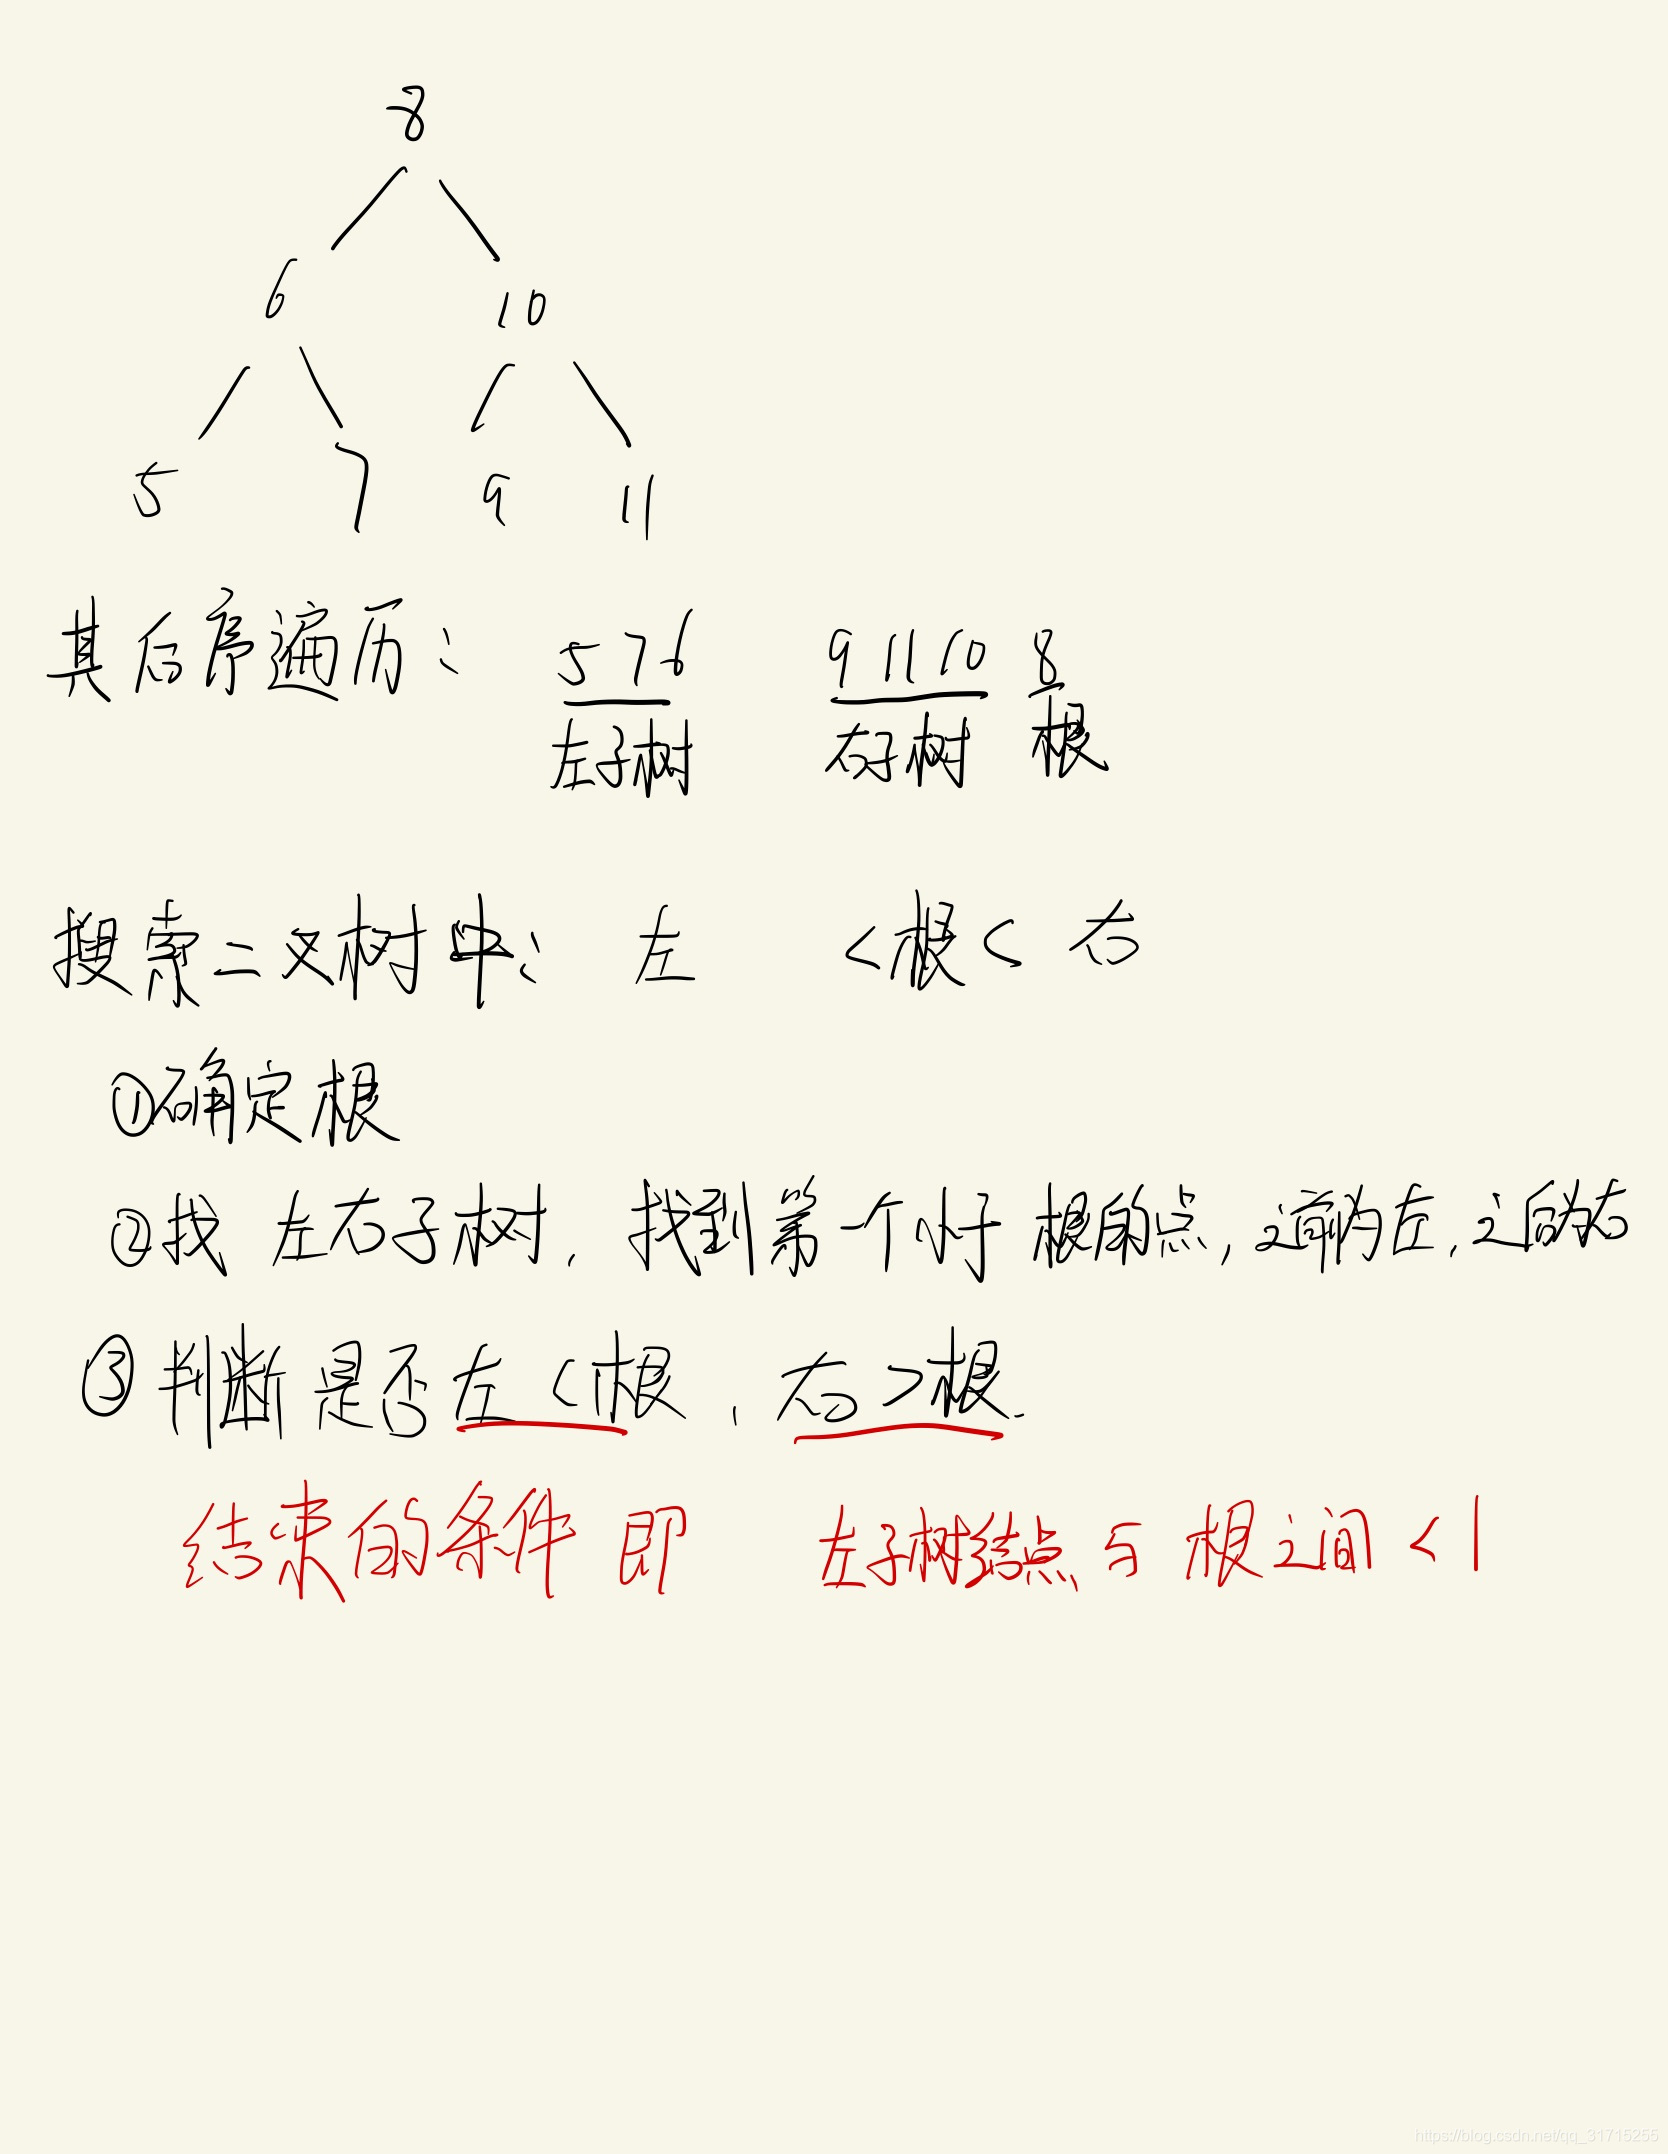 8
6 10
5 7 9 11
其后序遍历: 576 91110 8
左子树 右子树 根
搜索二叉树中: 左 <根< 右
①确定根
②找 左右子树, 找到第一个小于 根的点, 之前为左, 之后为右
③判断是否左<根, 右>根.
结束的条件即 左子树结点与根之间<1
https://blog.csdn.net/qq_31715255